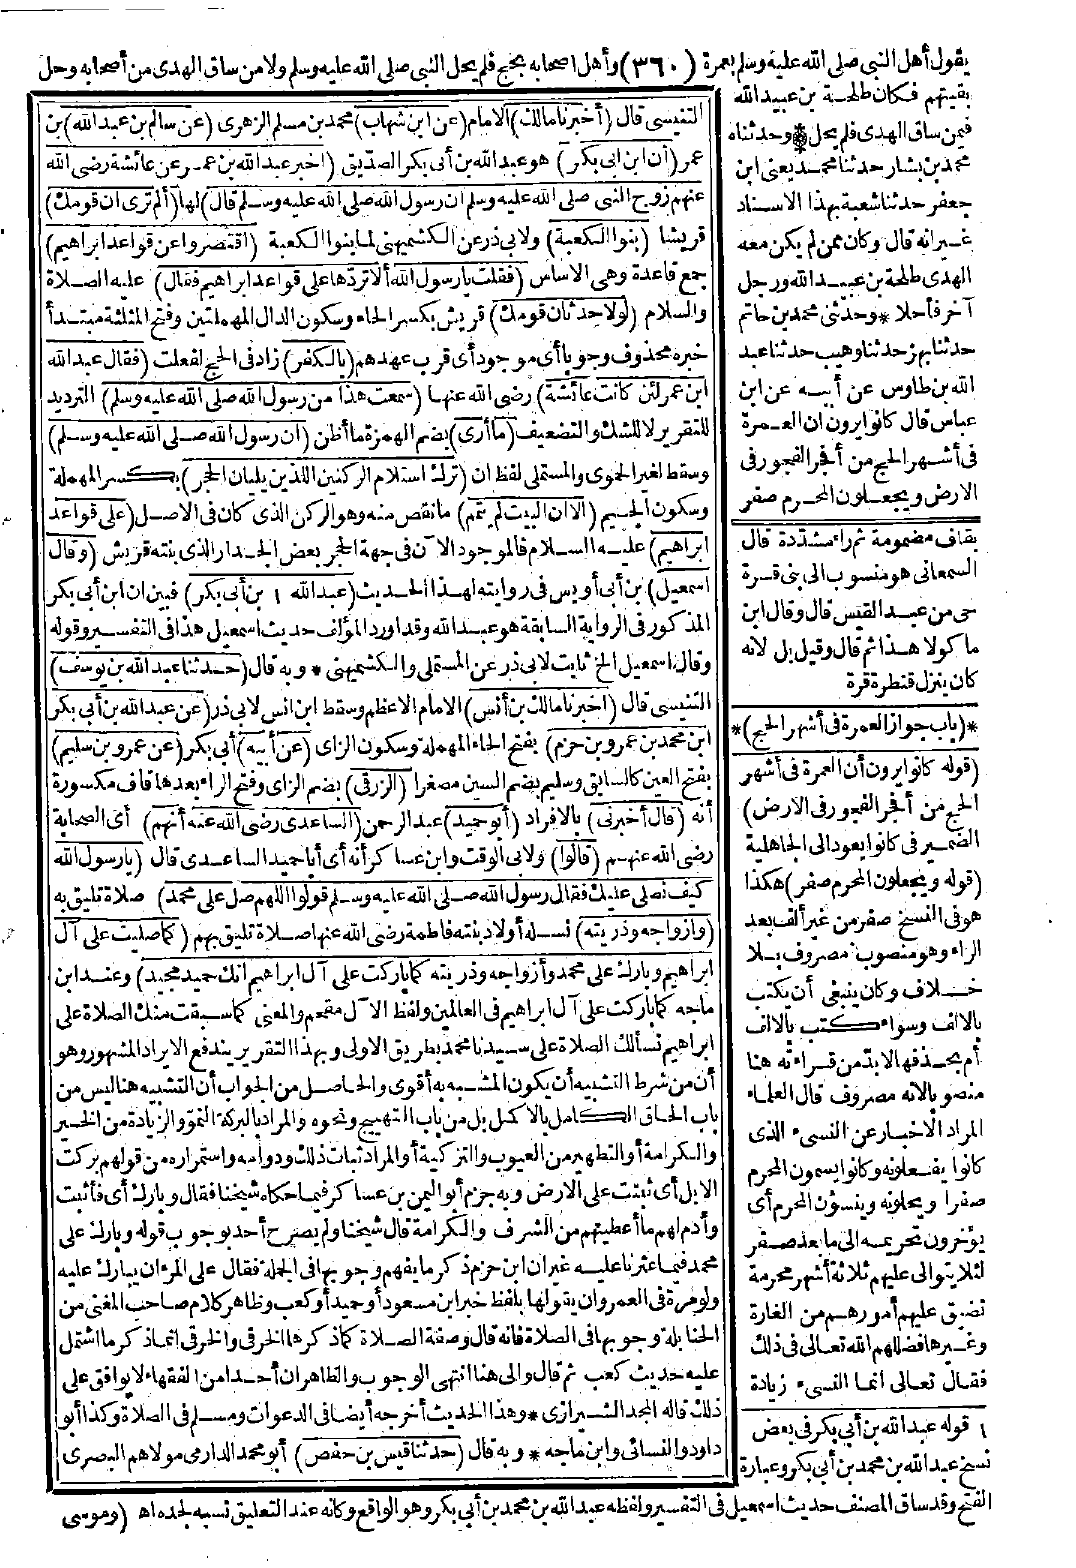 يقول أهل النبي صلى الله عليه وسلم بعمرة (٣٦٠) وأهل اصحابه بحج فلم يحل النبي صلى الله عليه وسلم ولا من ساق الهدى من أصحابه وحل
بقيتهم فكان طلحة بن عبيد الله
فيمن ساق الهدى فلم يحل * وحدثناه
محمد بن بشار حدثنا محمد يعنى ابن
جعفر حدثنا شعبة بهذا الاسناد
غير انه قال وكان ممن لم يكن معه
الهدى طلحة بن عبيد الله ورجل
آخر فأحلا * وحدثنى محمد بن حاتم
حدثنا بهز حدثنا وهيب حدثنا عبد
الله بن طاوس عن أبيه عن ابن
عباس قال كانوا يرون ان العمرة
فى أشهر الحج من أفجر الفجور فى
الارض ويجعلون المحرم صفر
بقاف مضمومة ثم راء مشددة قال
السمعانى هو منسوب الى بنى قرة
حى من عبد القيس قال وقال ابن
ماكولا هذا ثم قال وقيل بل لانه
كان ينزل قنطرة قرة
*(باب جواز العمرة فى أشهر الحج)*
(قوله كانوا يرون أن العمرة فى أشهر
الحج من أفجر الفجور فى الارض)
الضمير فى كانوا يعود الى الجاهلية
(قوله ويجعلون المحرم صفر) هكذا
هو فى النسخ صفر من غير ألف بعد
الراء وهو منصوب مصروف بلا
خلاف وكان ينبغى أن يكتب
بالالف وسواء كتب بالالف
أم بحذفها لابد من قراءته هنا
منصوبا لانه مصروف قال العلماء
المراد الاخبار عن النسىء الذى
كانوا يفعلونه وكانوا يسمون المحرم
صفرا ويحلونه وينسؤن المحرم أى
يؤخرون تحريمه الى ما بعد صفر
لئلا يتوالى عليهم ثلاثة أشهر محرمة
تضيق عليهم أمورهم من الغارة
وغيرها فضللهم الله تعالى فى ذلك
فقال تعالى انما النسىء زيادة
١ قوله عبد الله بن أبى بكر فى بعض
نسخ عبد الله بن محمد بن أبى بكر وعبارة
الفتح وقد ساق المصنف حديث اسمعيل فى التفسير ولفظه عبد الله بن محمد بن أبى بكر وهو الواقع وكأنه عند التعليق نسبه لجده اه (وموسى
التنيسى قال (أخبرنا مالك) الامام (عن ابن شهاب) محمد بن مسلم الزهرى (عن سالم بن عبد الله) بن
عمر (أن ابن ابى بكر) هو عبد الله بن أبى بكر الصديق (اخبر عبد الله بن عمر عن عائشة رضى الله
عنهم زوج النبى صلى الله عليه وسلم ان رسول الله صلى الله عليه وسلم قال) لها (ألم ترى ان قومك)
قريشا (بنوا الكعبة) ولابى ذر عن الكشميهنى لما بنوا الكعبة (اقتصروا عن قواعد ابراهيم)
جمع قاعدة وهى الاساس (فقلت يا رسول الله ألا تردها على قواعد ابراهيم فقال) عليه الصلاة
والسلام (لولا حدثان قومك) قريش بكسر الحاء وسكون الدال المهملتين وفتح المثلثة مبتدأ
خبره محذوف وجوبا أى موجود أى قرب عهدهم (بالكفر) زاد فى الحج لفعلت (فقال عبد الله
ابن عمر لئن كانت عائشة) رضى الله عنها (سمعت هذا من رسول الله صلى الله عليه وسلم) الترديد
للتقرير لا للشك والتضعيف (ما أرى) بضم الهمزة ما أظن (ان رسول الله صلى الله عليه وسلم)
وسقط لغير الحموى والمستملى لفظ ان (ترك استلام الركنين اللذين يليان الحجر) بكسر المهملة
وسكون الجيم (الا ان البيت لم يتمم) ما نقص منه وهو الركن الذى كان فى الاصل (على قواعد
ابراهيم) عليه السلام فالموجود الآن فى جهة الحجر بعض الجدار الذى بنته قريش (وقال
اسمعيل) بن أبى أويس فى روايته لهذا الحديث (عبد الله ١ بن أبى بكر) فبين ان ابن أبى بكر
المذكور فى الرواية السابقة هو عبد الله وقد اورد المؤلف حديث اسمعيل هذا فى التفسير وقوله
وقال اسمعيل الخ ثابت لابى ذر عن المستملى والكشميهنى * وبه قال (حدثنا عبد الله بن يوسف)
التنيسى قال (اخبرنا مالك بن أنس) الامام الاعظم وسقط ابن انس لابى ذر (عن عبد الله بن أبى بكر
ابن محمد بن عمرو بن حزم) بفتح الحاء المهملة وسكون الزاى (عن أبيه) أبى بكر (عن عمرو بن سليم)
بفتح العين كالسابق وسليم بضم السين مصغرا (الزرقى) بضم الزاى وفتح الراء بعدها قاف مكسورة
أنه (قال أخبرنى) بالافراد (أبو حميد) عبد الرحمن (الساعدى رضى الله عنه أنهم) أى الصحابة
رضى الله عنهم (قالوا) ولابى الوقت وابن عساكر أنه أى أبا حميد الساعدى قال (يا رسول الله
كيف نصلى عليك فقال رسول الله صلى الله عليه وسلم قولوا اللهم صل على محمد) صلاة تليق به
(وازواجه وذريته) نسله أولاد بنته فاطمة رضى الله عنها صلاة تليق بهم (كما صليت على آل
ابراهيم وبارك على محمد وأزواجه وذريته كما باركت على آل ابراهيم انك حميد مجيد) وعند ابن
ماجه كما باركت على آل ابراهيم فى العالمين ولفظ الآل مقحم والمعنى كما سبقت منك الصلاة على
ابراهيم نسألك الصلاة على سيدنا محمد بطريق الاولى وبهذا التقرير يندفع الايراد المشهور وهو
أن من شرط التشبيه أن يكون المشبه به أقوى والحاصل من الجواب أن التشبيه هنا ليس من
باب الحاق الكامل بالاكمل بل من باب التهييج ونحوه والمراد بالبركة النمو والزيادة من الخير
والكرامة أو التطهير من العيوب والتزكية أو المراد ثبات ذلك ودوامه واستمراره من قولهم بركت
الابل أى ثبتت على الارض وبه جزم أبو اليمن بن عساكر فيما حكاه شيخنا فقال وبارك أى فأثبت
وأدم لهم ما أعطيتهم من الشرف والكرامة قال شيخنا ولم يصرح أحد بوجوب قوله وبارك على
محمد فيما عثرنا عليه غير ان ابن حزم ذكر ما يفهم وجوبها فى الجملة فقال على المرء ان يبارك عليه
ولو مرة فى العمر وان يقولها بلفظ خبر ابن مسعود أو حميد أو كعب وظاهر كلام صاحب المغنى من
الحنابلة وجوبها فى الصلاة فانه قال وصفة الصلاة كما ذكرها الخرقى والخرقى انما ذكر ما اشتمل
عليه حديث كعب ثم قال والى هنا انتهى الوجوب والظاهر ان أحدا من الفقهاء لا يوافق على
ذلك قاله المجد الشيرازى * وهذا الحديث أخرجه أيضا فى الدعوات ومسلم فى الصلاة وكذا أبو
داود والنسائى وابن ماجه * وبه قال (حدثنا قيس بن حفص) أبو محمد الدارمى مولاهم البصرى